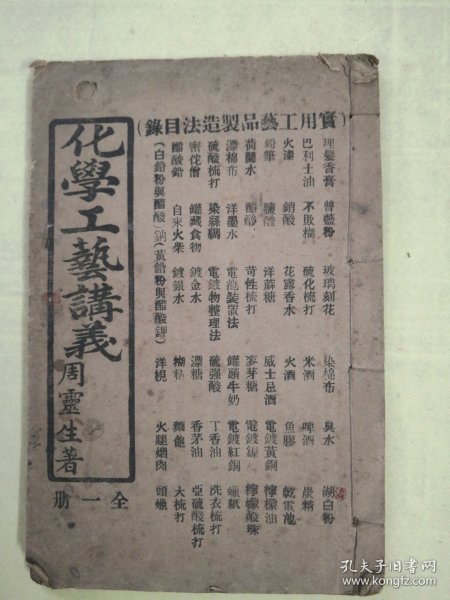 （實用工藝品製造法目錄）
理髮香膏 普藍粉 玻璃刻花 染棉布 臭水 湖白粉
巴利士油 不敗糊 硫化梳打 米酒 啤酒 炭精
火漆 硝酸 花露香水 火酒 魚膠 乾電池
粉筆 鹽酸 洋蔴糖 威士忌酒 電鍍黃銅 檸檬油
荷蘭水 醋酸 苛性梳打 麥芽糖 電鍍鎳 檸檬酸珠
漂棉布 洋墨水 電鍍裝置法 罐頭牛奶 電鍍紅銅 蠟紙
硫酸梳打 染絲綢 電鍍物整理法 硫强酸 丁香油 洗衣梳打
密佗僧 罐藏食物 鍍金水 漂糖 香茅油 亞硫酸梳打
醋酸鉛 自來火柴 鍍銀水 糊精 麵飽 大梳打
（白鉛粉與醋酸鈉）（黃鉛粉與醋酸鉀） 洋梘 火腿烟肉 頭蠟
化學工藝講義
周靈生著
全一册
孔夫子旧书网
www.kongfz.com